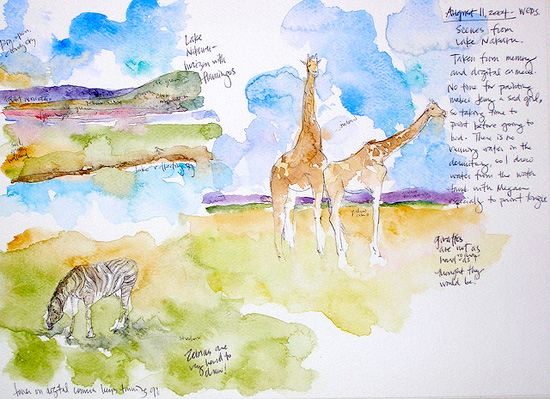 August 11, 2004 - WEDS.
Scenes from
Lake Nakuru.
Taken from memory
and digital camera.
No time for painting
makes Jenny a sad girl,
so taking time to
paint before going to
bed. There is no
running water in the
dormitory, so I draw
water from the water
tank with Megan
especially to paint tonight
giraffes
are not as
hard as
I thought they
would be.
Lake
horizon with
flamingos
Zebras are
very hard to
draw!
on digital camera keeps turning off